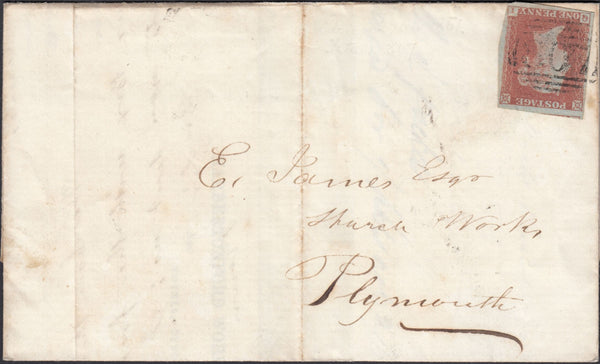 POSTAGE
ONE PENNY
E. James Esqr
Starch Works
Plymouth